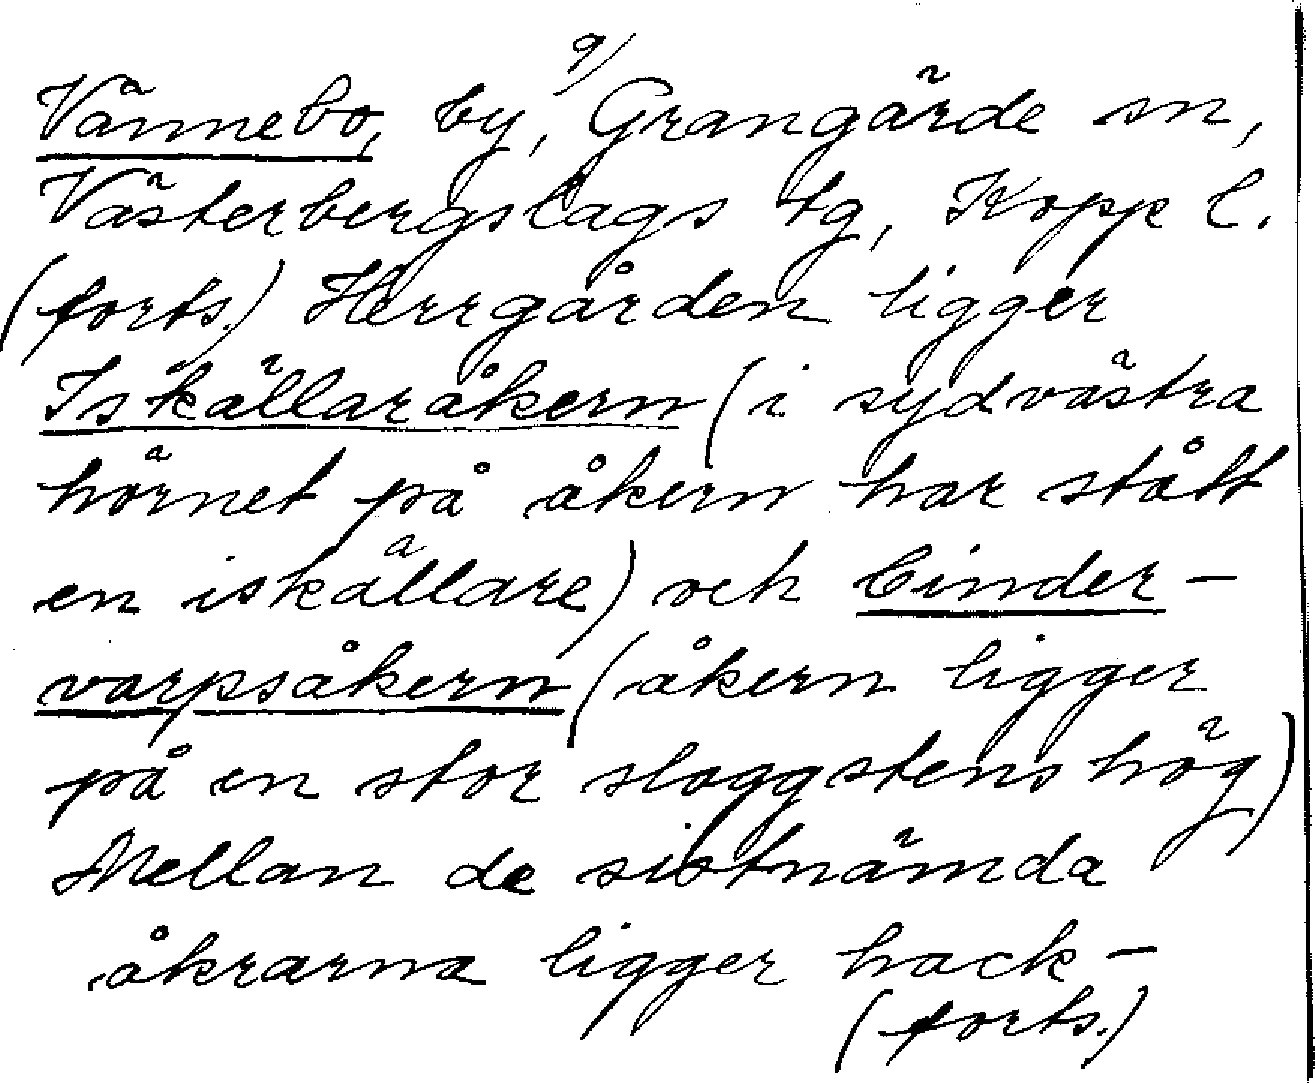 9/
Vännebo, by, Grangärde sn,
Västerbergslags tg, Kopp l.
(forts.) Herrgården ligger
Iskälleråkern (i sydvästra
hörnet på åkern har stått
en iskällare) och Cinder-
varpsåkern (åkern ligger
på en stor slaggstenshög)
Mellan de sistnämda
åkrarna ligger hack-
(forts.)